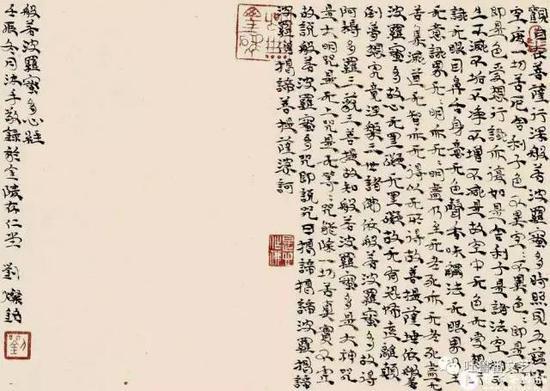 觀自在菩薩行深般若波羅蜜多時照見五蘊
空度一切苦厄舍利子色不異空空不異色色即是空
即是色受想行識亦復如是舍利子是諸法空
生不滅不垢不淨不增不減是故空中无色无受想
識无眼耳鼻舌身意无色聲香味觸法无眼界
无意識界无无明亦无无明盡乃至无老死亦无老死盡
苦集滅道无智亦无得以无所得故菩提薩埵依般若
波羅蜜多故心无罣礙无罣礙故无有恐怖遠離顛
倒夢想究竟涅槃三世諸佛依般若波羅蜜多故得
阿耨多羅三藐三菩提故知般若波羅蜜多是大神咒
是大明咒是无上咒是无等等咒能除一切苦真實不虛
故說般若波羅蜜多咒即說咒曰揭諦揭諦波羅揭諦
波羅僧揭諦菩提薩婆訶
般若波羅蜜多心經
壬辰冬月法子敬錄於金陵存仁堂 劉燦銘
劉
吐鲁番文艺